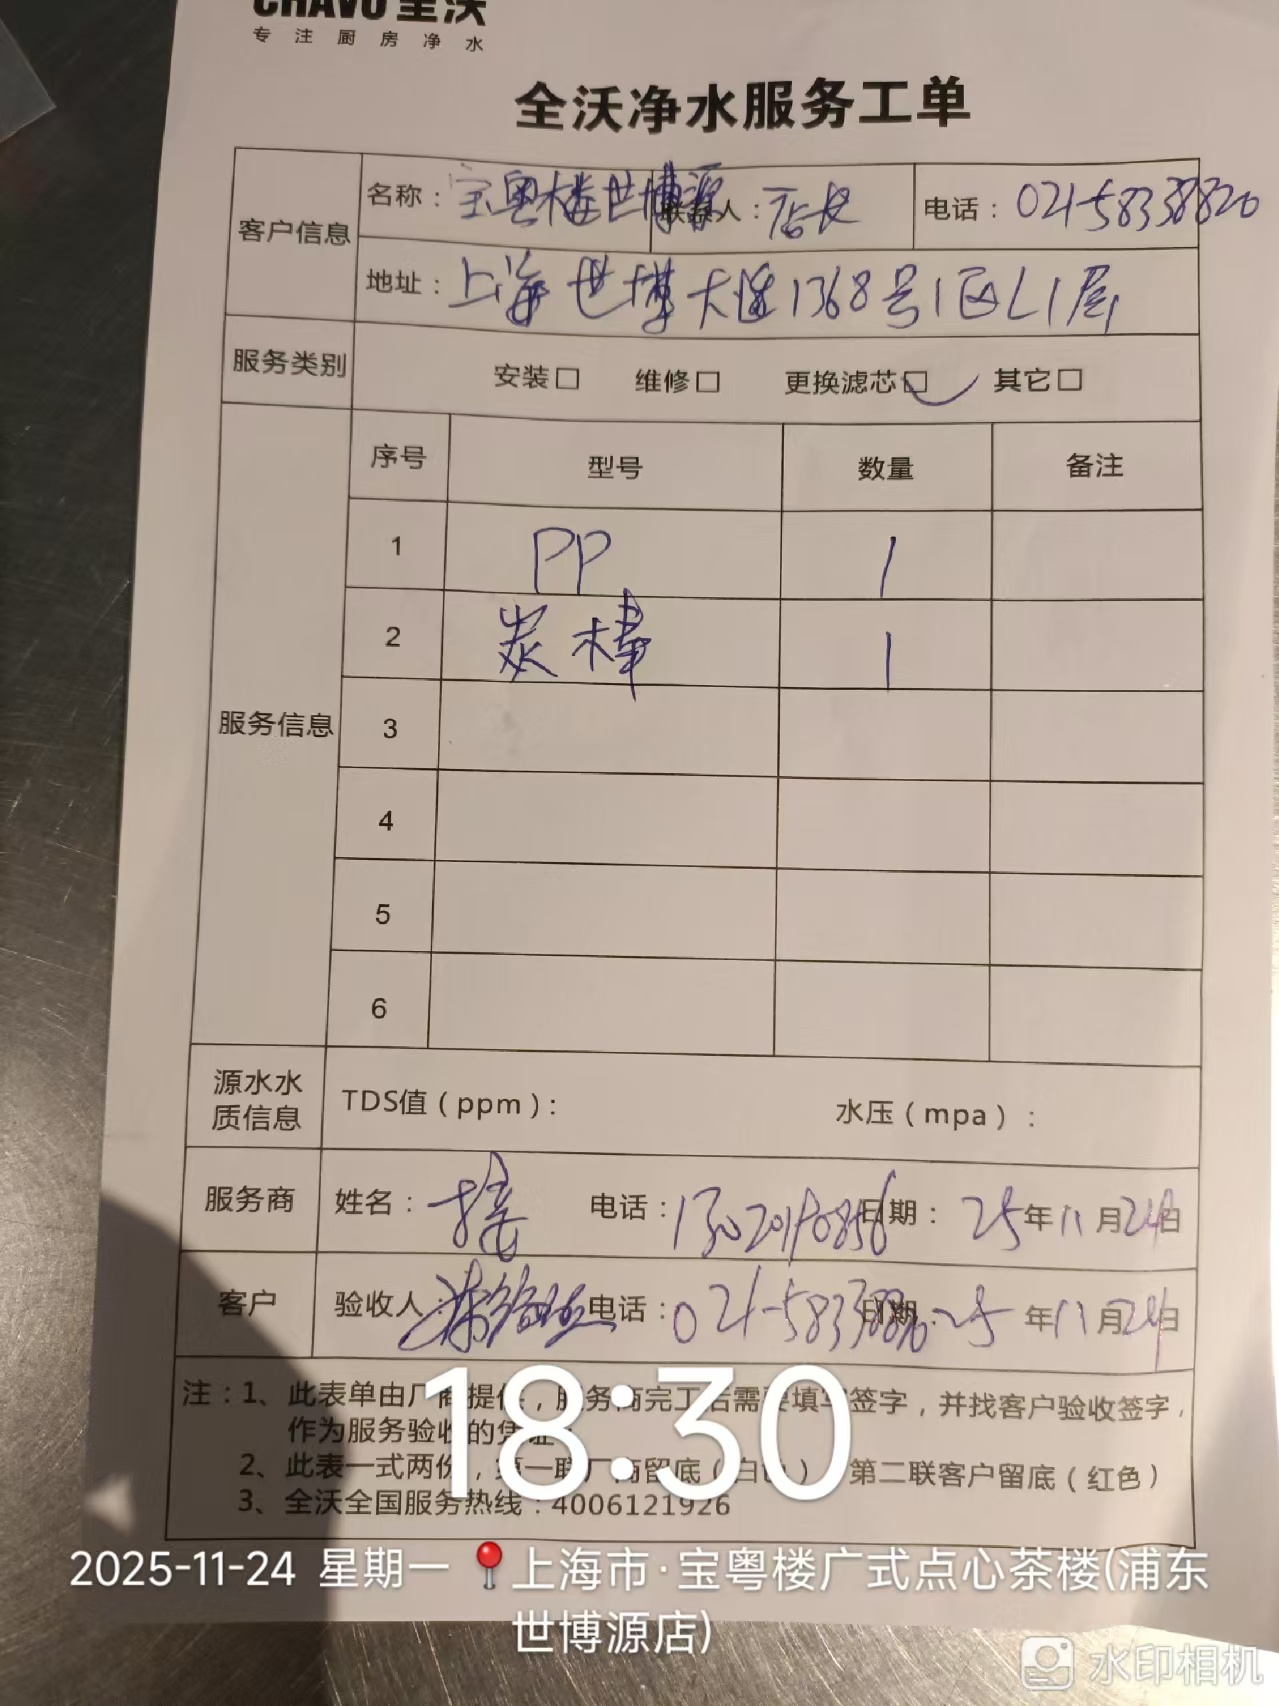 CHAVO 全沃
专注厨房净水
全沃净水服务工单
客户信息 名称：宝粤楼世博源 联系人：店长 电话：021-58338820
地址：上海世博大道1368号1区L1层
服务类别 安装□ 维修□ 更换滤芯□ 其它□
服务信息 序号 型号 数量 备注
1 PP 1
2 炭棒 1
3
4
5
6
源水水质信息 TDS值（ppm）： 水压（mpa）：
服务商 姓名： 电话：13020190856 日期：25年11月24日
客户 验收人： 电话：021-58338820 日期：25年11月24日
注：1、此表单由厂商提供，服务商完工后需要填写签字，并找客户验收签字，
作为服务验收的凭证
2、此表一式两份，第一联厂商留底（白色） 第二联客户留底（红色）
3、全沃全国服务热线：4006121926
18:30
2025-11-24 星期一 上海市·宝粤楼广式点心茶楼(浦东
世博源店)
水印相机